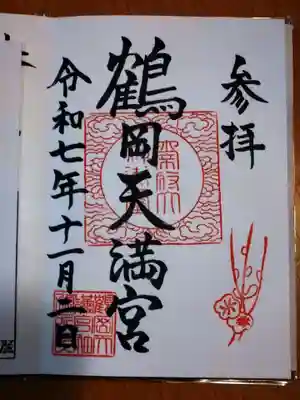 参拝
鶴岡天満宮
令和七年十一月二日